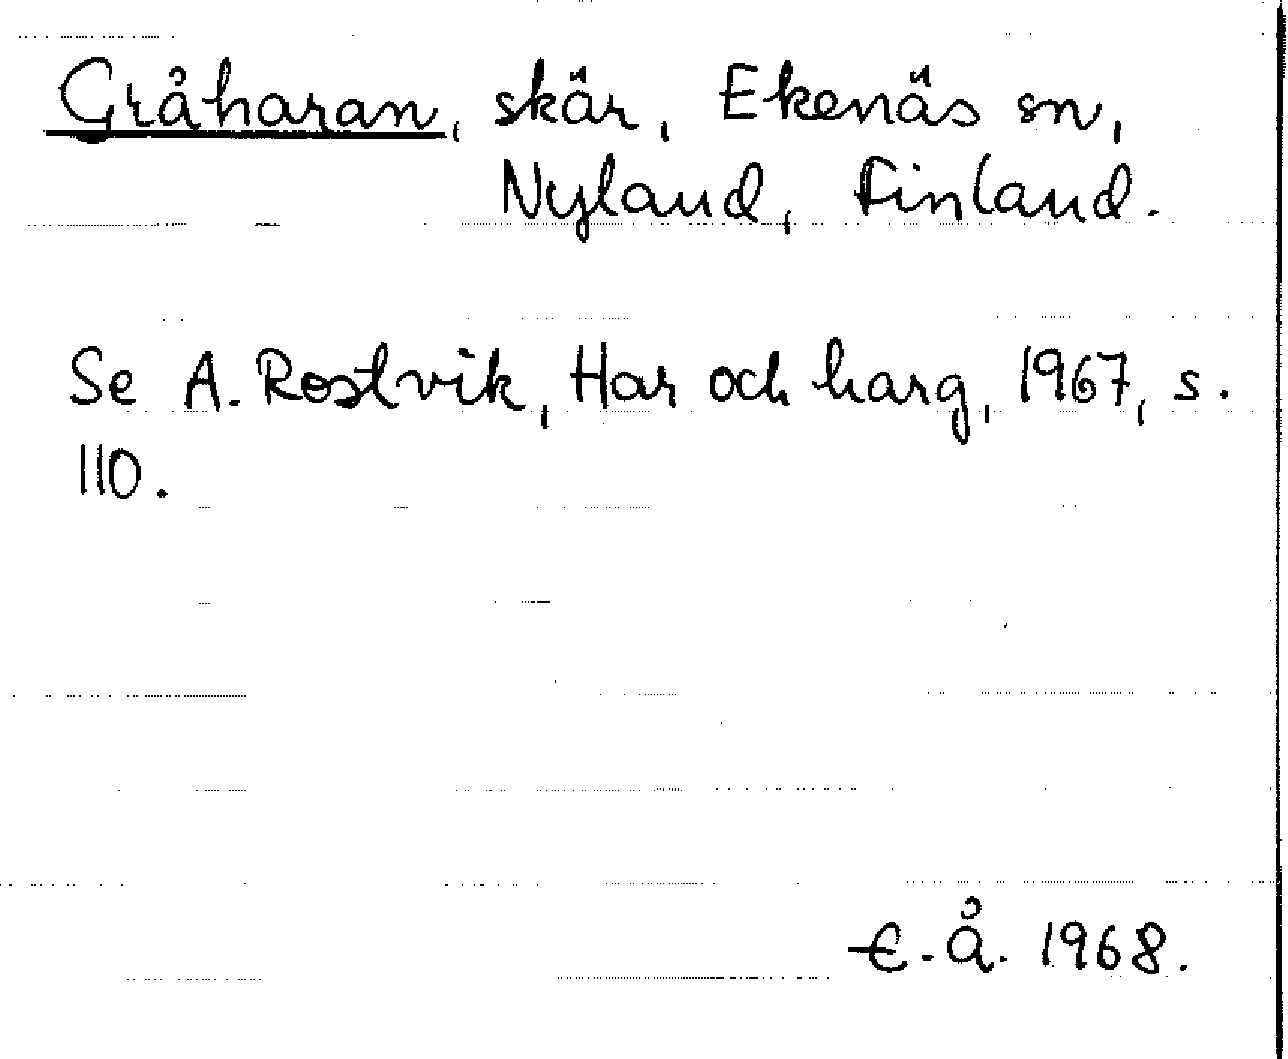 Gråharan, skär, Ekenäs sn,
Nyland, Finland.
Se A. Rostvik, Har och harg, 1967, s.
110.
E.Å. 1968.